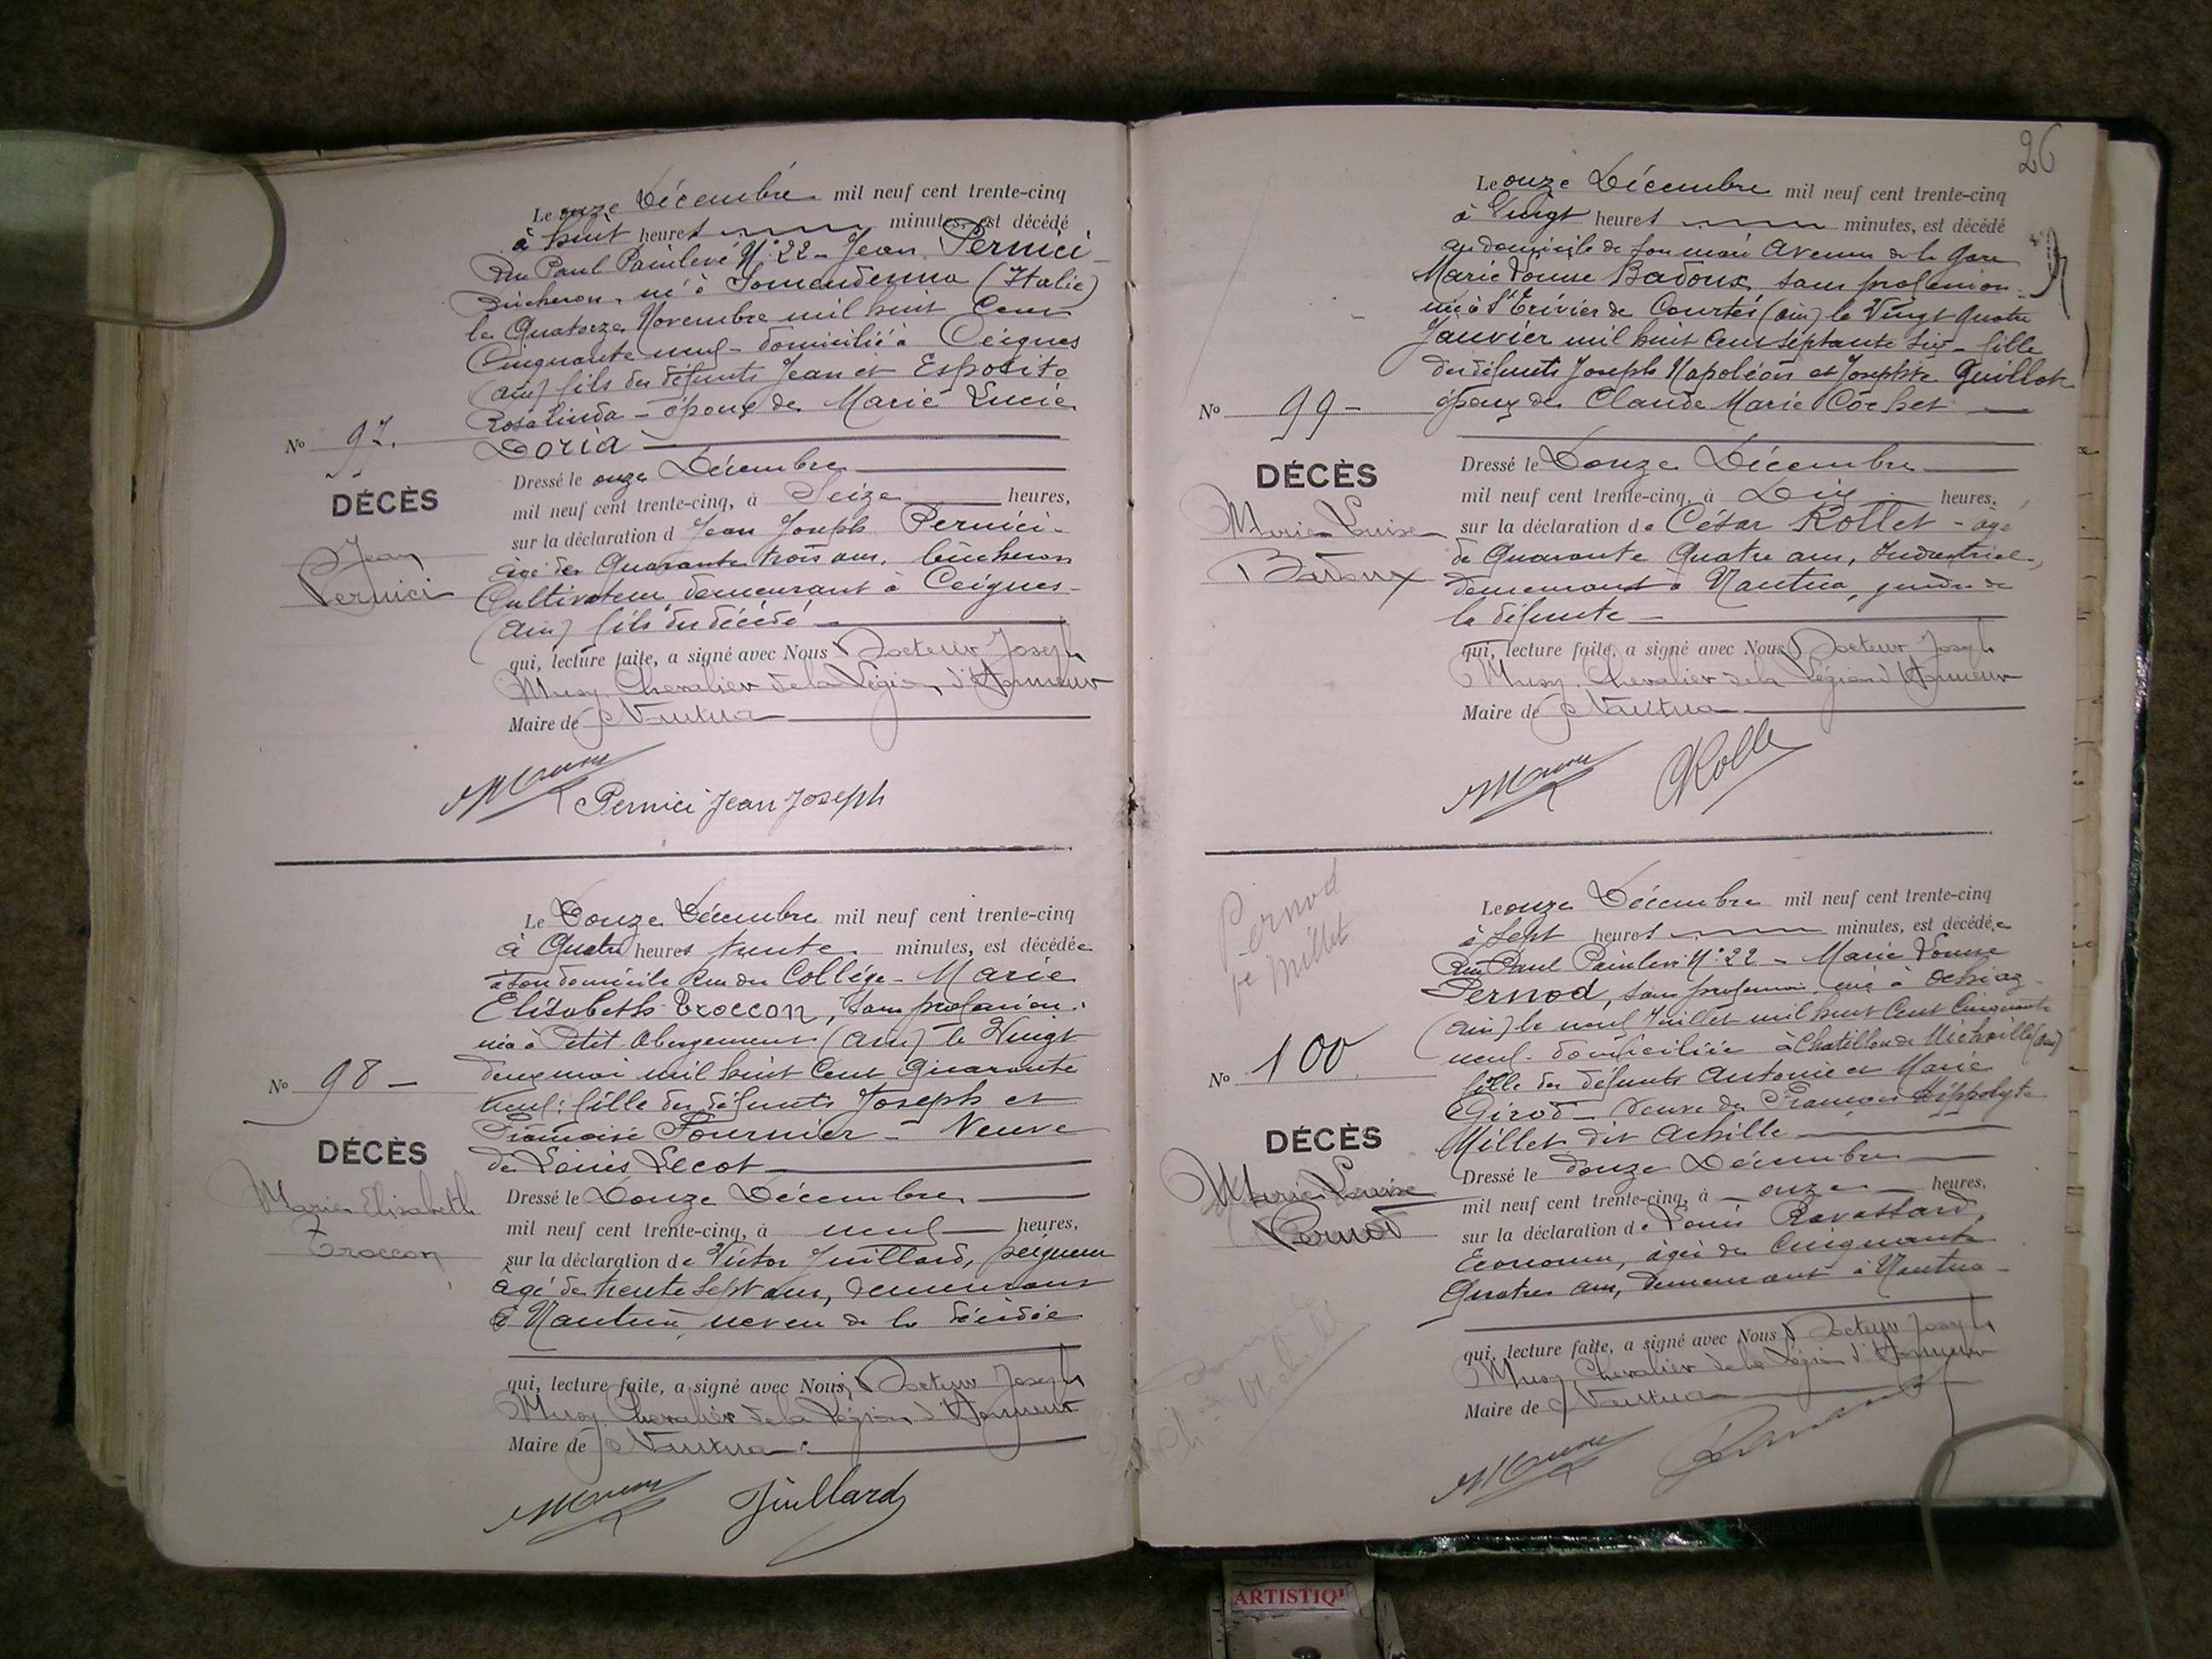 Le onze Décembre mil neuf cent trente-cinq
à huit heures minutes, est décédé
Rue Paul Painlevé N° 22 - Jean Pernici
Bûcheron, né à (Italie)
le Quatorze Novembre mil huit Cent
Cinquante neuf - domicilié à Ceignes
(ain) fils des défunts Jean et Esposito
Rosalinda - époux de Marie Lucie
Doria
N° 97.
DÉCÈS
Jean
Pernici
Dressé le onze Décembre
mil neuf cent trente-cinq, à Seize heures,
sur la déclaration d Jean Joseph Pernici -
agé de Quarante trois ans, bûcheron
Cultivateur demeurant à Ceignes -
(ain) fils du décédé
qui, lecture faite, a signé avec Nous Docteur Joseph
Musy, Chevalier de la Légion d'Honneur
Maire de Nantua
Pernici Jean Joseph
Le Douze Décembre mil neuf cent trente-cinq
à Quatre heures trente minutes, est décédée
à son domicile Rue du Collége - Marie
Elisabeth Troccon, sans profession.
née à Petit Abergement (ain) le Vingt
deux mai mil huit Cent Quarante
neuf: fille des défunts Joseph et
Françoise Fournier - Veuve
de Louis Lecot
N° 98 -
DÉCÈS
Marie Elisabeth
Troccon
Dressé le Douze Décembre
mil neuf cent trente-cinq, à neuf heures,
sur la déclaration de Victor Juillard, peigneur
âgé de trente sept ans, demeurant
à Nantua, neveu de la décédée
qui, lecture faite, a signé avec Nous, Docteur Joseph
Musy, Chevalier de la Légion d'Honneur
Maire de Nantua
Juillard
26
Le onze Décembre mil neuf cent trente-cinq
à Vingt heures minutes, est décédé
au domicile de son mari Avenue de la Gare
Marie Louise Badoux, sans profession
née à St Trivier de Courtes (ain) le Vingt Quatre
Janvier mil huit Cent septante six - fille
des défunts Joseph Napoléon et Josephte Guillot
épouse de Claude Marie Cochet
N° 99 -
DÉCÈS
Marie Louise
Badoux
Dressé le Douze Décembre
mil neuf cent trente-cinq, à Dix heures,
sur la déclaration de César Rollet - agé
de Quarante Quatre ans, Industriel,
demeurant à Nantua, gendre de
la défunte
qui, lecture faite, a signé avec Nous Docteur Joseph
Musy, Chevalier de la Légion d'Honneur
Maire de Nantua
Pernod
Millet
Le onze Décembre mil neuf cent trente-cinq
à Sept heures minutes, est décédée
Rue Paul Painlevé N° 22 - Marie Louise
Pernod, sans profession, née à Ochiaz
(ain) le neuf Juillet mil huit Cent Cinquante
neuf - domiciliée à Chatillon de Michaille (ain)
fille des défunts Antoine et Marie
Girod - Veuve de François Hippolyte
Millet dit Achille
N° 100
DÉCÈS
Marie Louise
Pernod
Dressé le douze Décembre
mil neuf cent trente-cinq, à onze heures,
sur la déclaration de Louis Ravassard,
Econome, âgé de Cinquante
Quatre ans, demeurant à Nantua -
qui, lecture faite, a signé avec Nous Docteur Joseph
Musy, Chevalier de la Légion d'Honneur
Maire de Nantua
ARTISTIQ